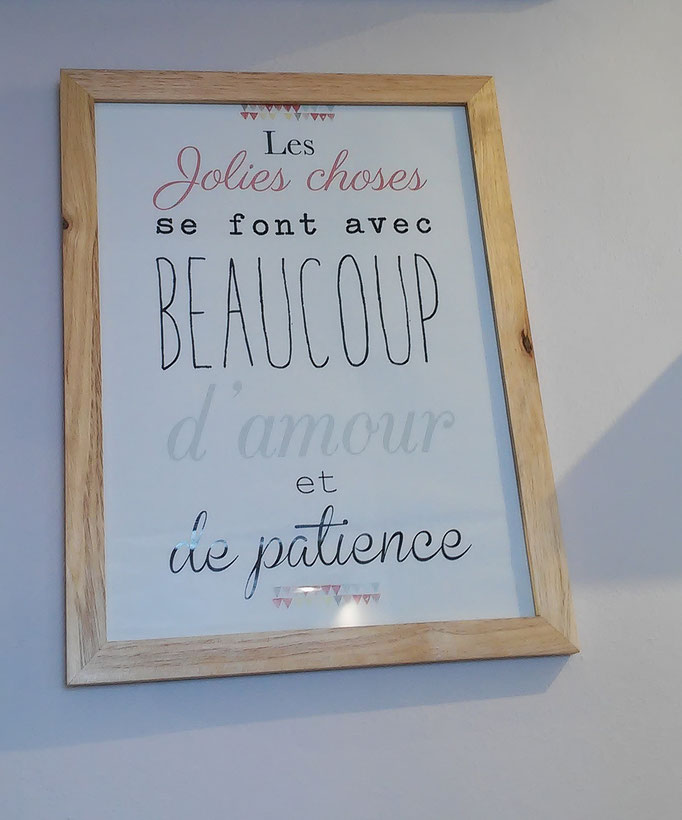 Les
Jolies choses
se font avec
BEAUCOUP
d'amour
et
de patience